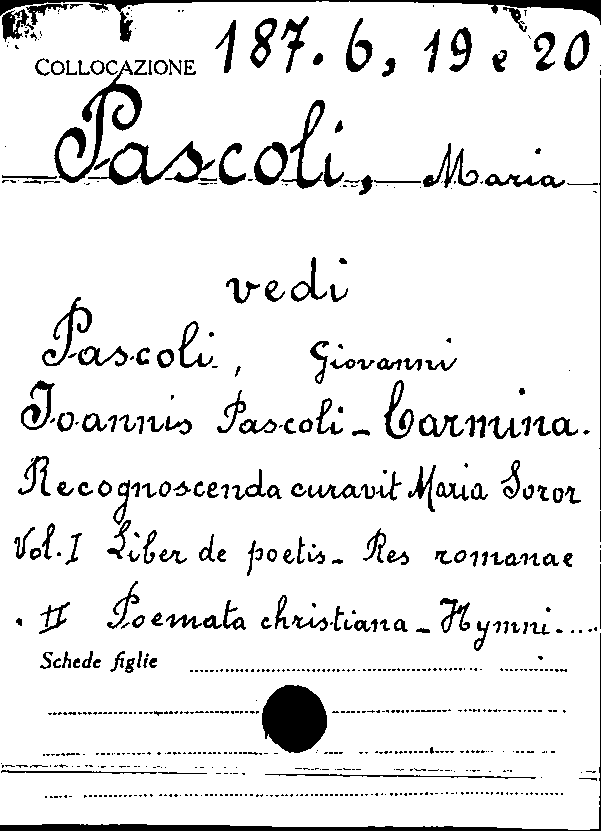 COLLOCAZIONE 187.6, 19 e 20
Pascoli, Maria
vedi
Pascoli, Giovanni
Joannis Pascoli - Carmina.
Recognoscenda curavit Maria Soror
Vol. I Liber de poetis - Res romanae
. II Poemata christiana - Hymni.....
Schede figlie